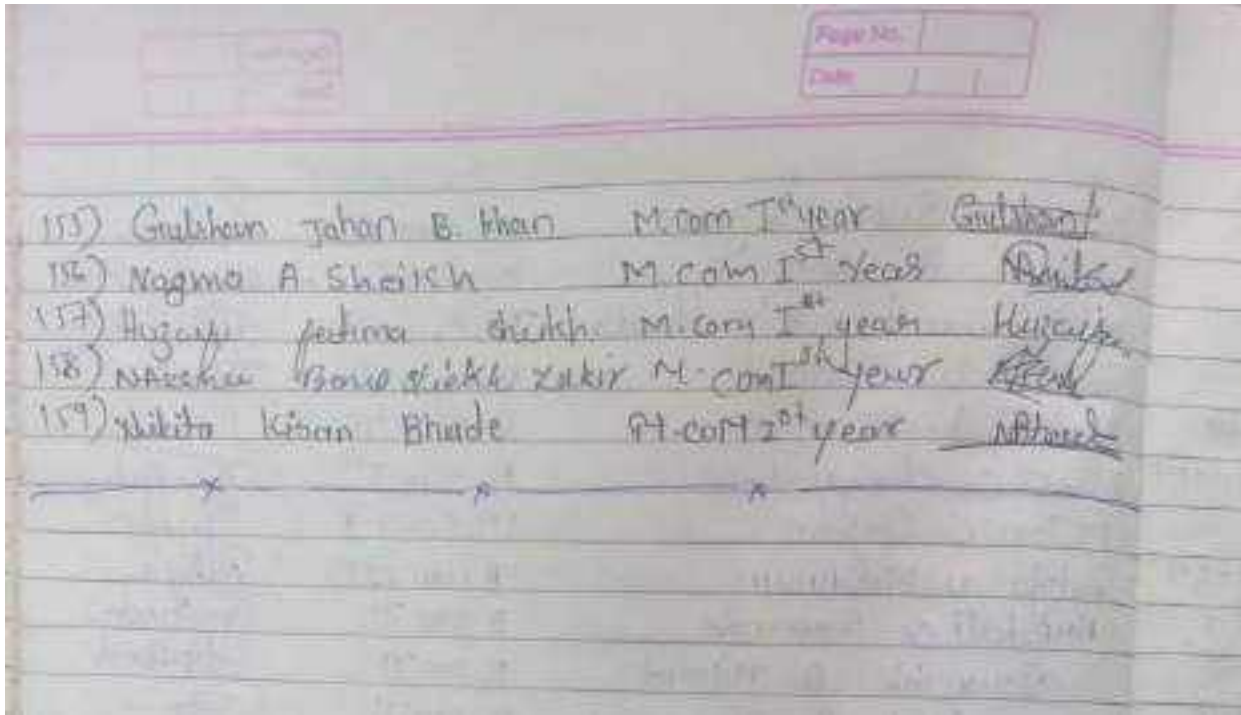 Page No.
Date
155) Gulshan Jahan B. Khan M.com Ist year Gulshan
156) Nagma A Sheikh M.com Ist Year
157) Huzaifa fatima sheikh. M.com Ist year Huzaifa
158) Bano zakir M.com Ist year
159) Nikita Kisan Bhude M.com 2st year